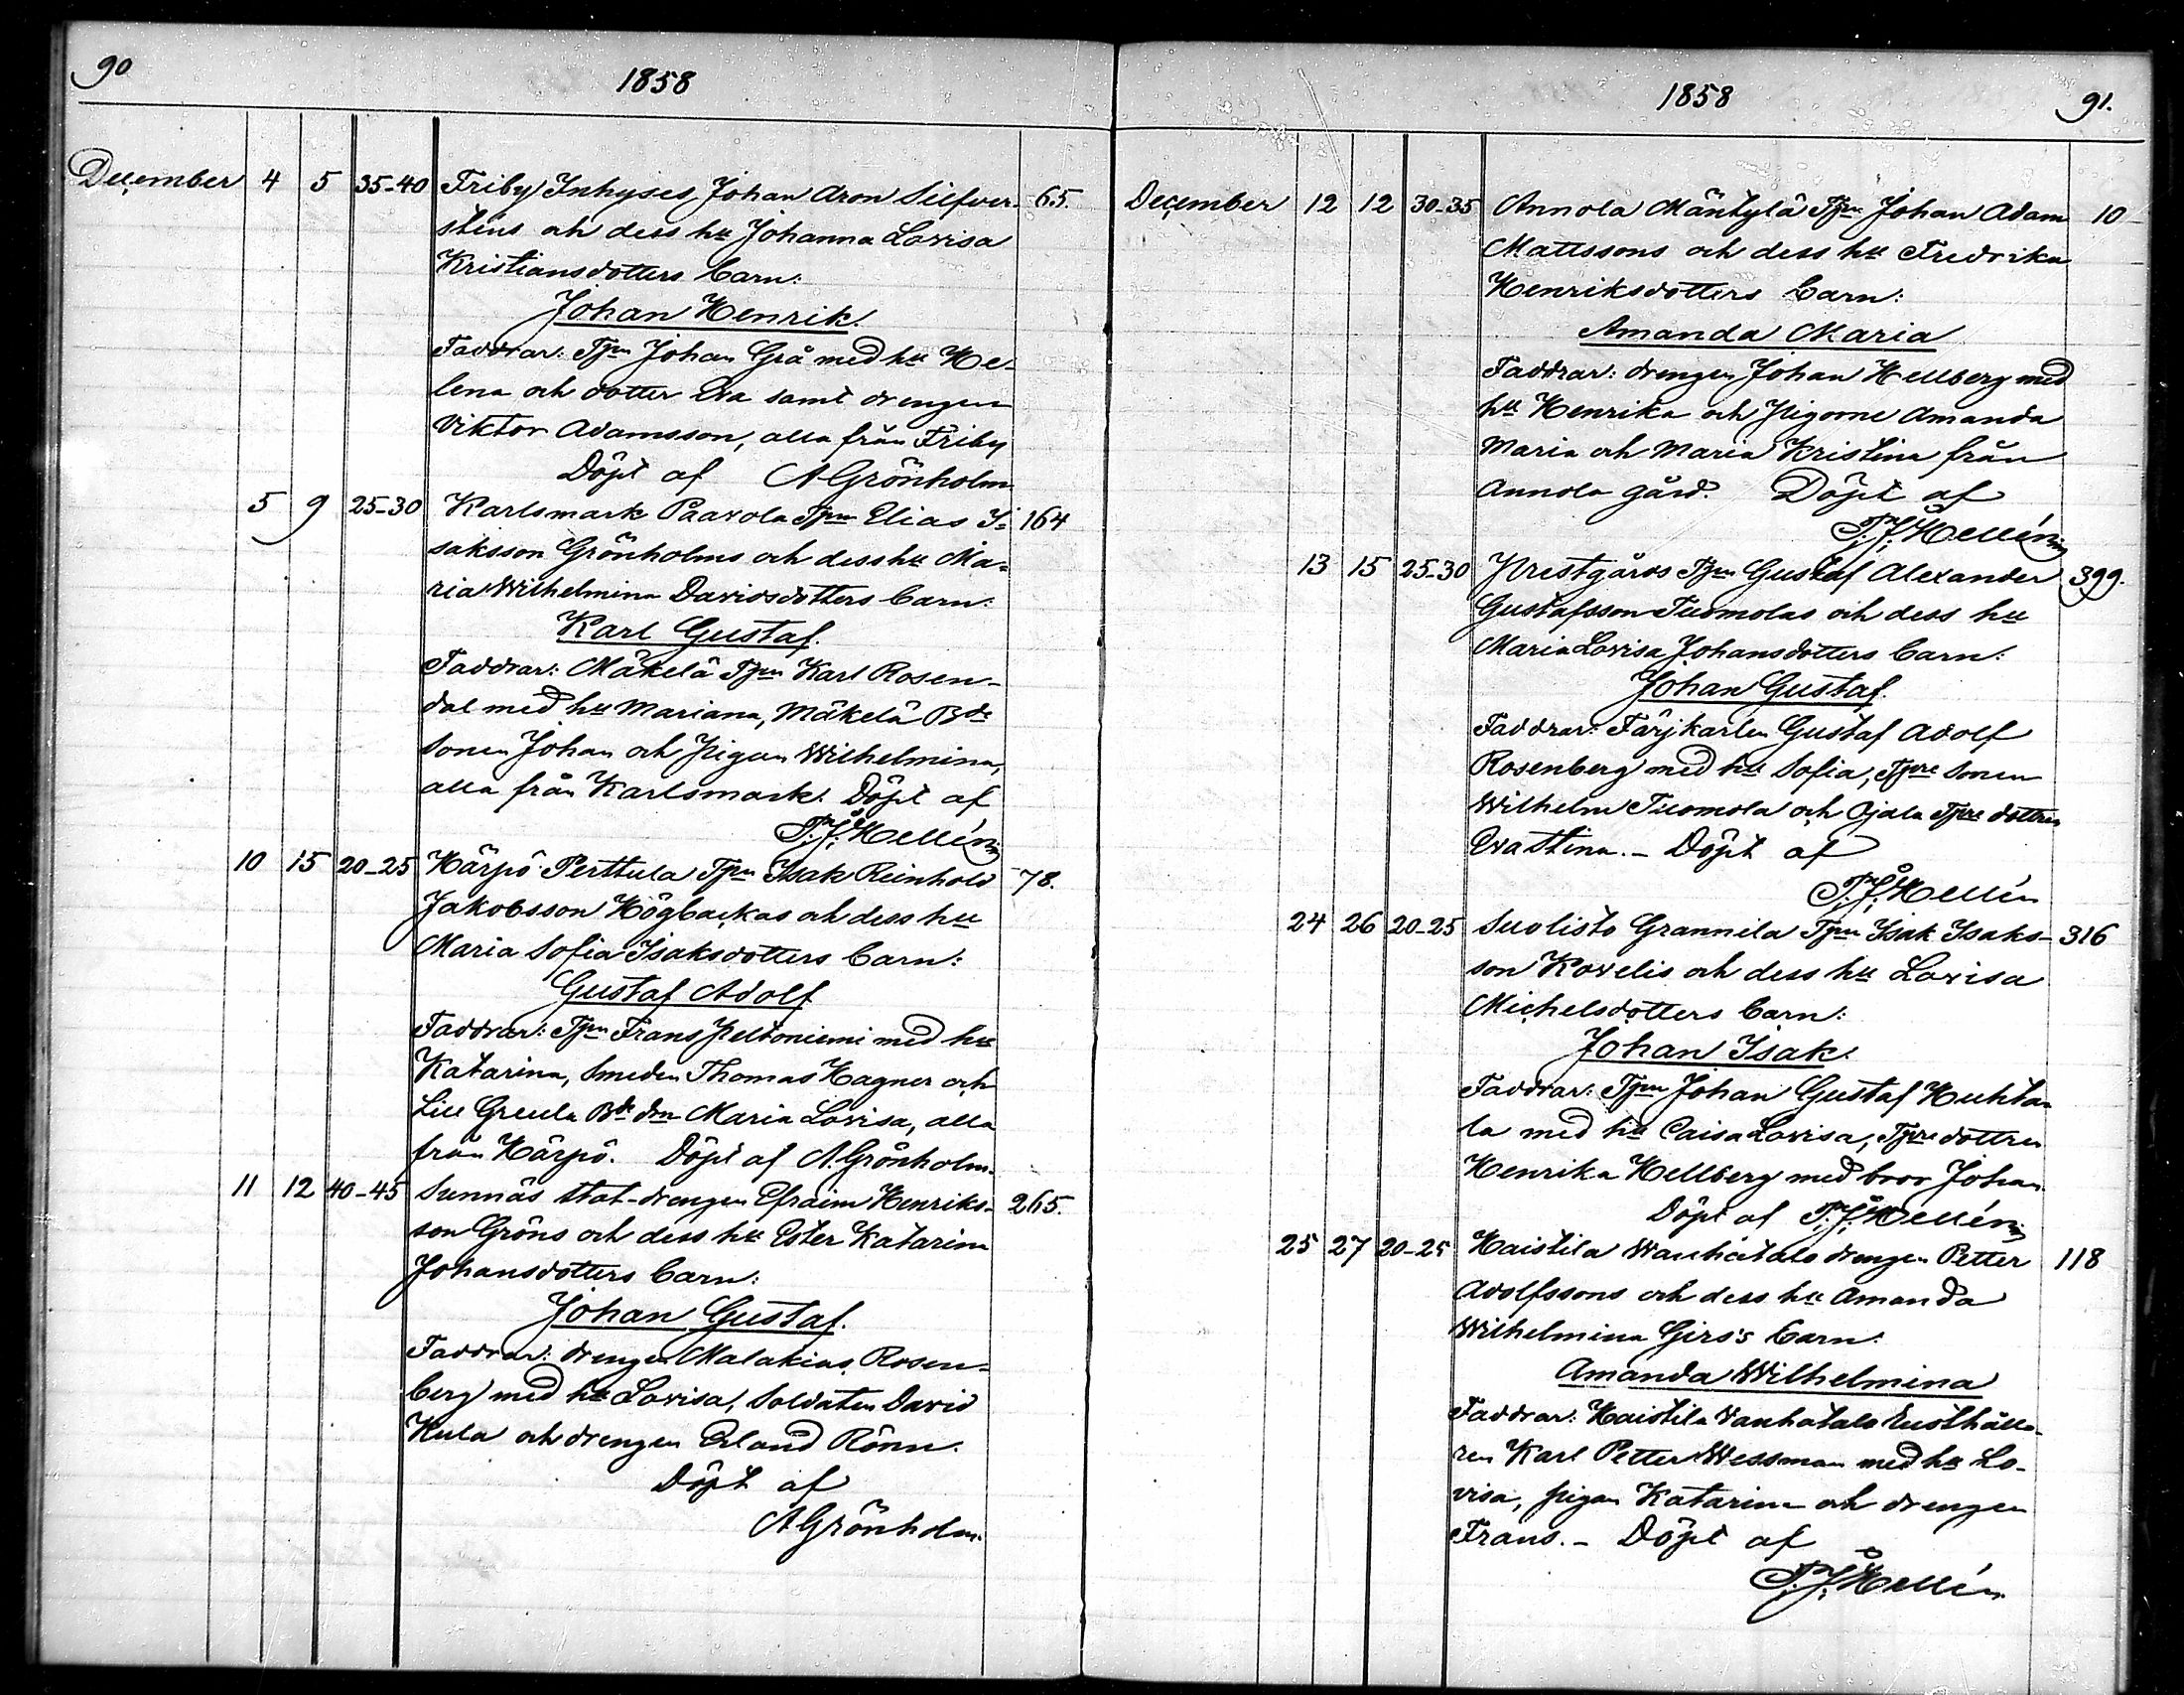 90
1858
December 4 5 35-40 Friby Inhyses Johan Aron Silfver- 65.
stens och dess hu Johanna Lovisa
Kristiansdotters barn:
Johan Henrik.
Faddrar: Tpn Johan Grå med hu He-
lena och dotter Eva samt drengen
Viktor Adamsson, alla från Friby
Döpt af A Grönholm
5 9 25-30 Karlsmark Paavola Tpn Elias I- 164
saksson Grönholms och dess hu Ma-
ria Wilhelmina Davidsdotters barn:
Karl Gustaf.
Faddrar: Mäkelä Tpn Karl Rosen-
dal med hu Mariana, Mäkelä Bde
sonen Johan och pigan Wilhelmina,
alla från Karlsmark. Döpt af
Hellén
10 15 20-25 Härpö Perttula Tpn Isak Reinhold 78.
Jakobsson Högbackas och dess hu
Maria Sofia Isaksdotters barn:
Gustaf Adolf
Faddrar: Tpn Frans Peltoniemi med hu
Katarina, Smeden Thomas Hagner och
Lill Greula Bde dn Maria Lovisa, alla
från Härpö. Döpt af A. Grönholm.
11 12 40-45 Sunnäs stat-drengen Efraim Henriks- 265.
son Gröns och dess hu Ester Katarina
Johansdotters barn:
Johan Gustaf.
Faddrar: drengen Malakias Rosen-
berg med hu Lovisa, Soldaten David
Kula och drengen Erland Rönn.
Döpt af
A Grönholm.
1858
91.
December 12 12 30-35 Annola Mäntylä Tpn Johan Adam 10
Mattssons och dess hu Fredrika
Henriksdotters barn:
Amanda Maria
Faddrar: drengen Johan Hellberg med
hu Henrika och pigorne Amanda
Maria och Maria Kristina från
Annola gård. Döpt af
Hellén
13 15 25-30 Prestgårds Tpn Gustaf Alexander 399.
Gustafsson Tuomolas och dess hu
Maria Lovisa Johansdotters barn:
Johan Gustaf.
Faddrar: Färjkarlen Gustaf Adolf
Rosenberg med hu Sofia, Tpre sonen
Wilhelm Tuomola och Ojala Tpre dottren
Eva Stina. - Döpt af
Hellén
24 26 20-25 Suolisto Grannila Tpn Isak Isaks- 316
son Kovelis och dess hu Lovisa
Michelsdotters barn:
Johan Isak.
Faddrar: Tpn Johan Gustaf Huhta-
la med hu Caisa Lovisa, Tpre dottren
Henrika Hellberg med bror Johan
Döpt af Hellén
25 27 20-25 Haistila Wanhatalo drengen Petter 118
Adolfssons och dess hu Amanda
Wilhelmina Girs's barn:
Amanda Wilhelmina
Faddrar: Haistila Vanhatalo Rusthålla-
ren Karl Petter Wessman med hu Lo-
visa, pigan Katarina och drengen
Frans. - Döpt af
Hellén